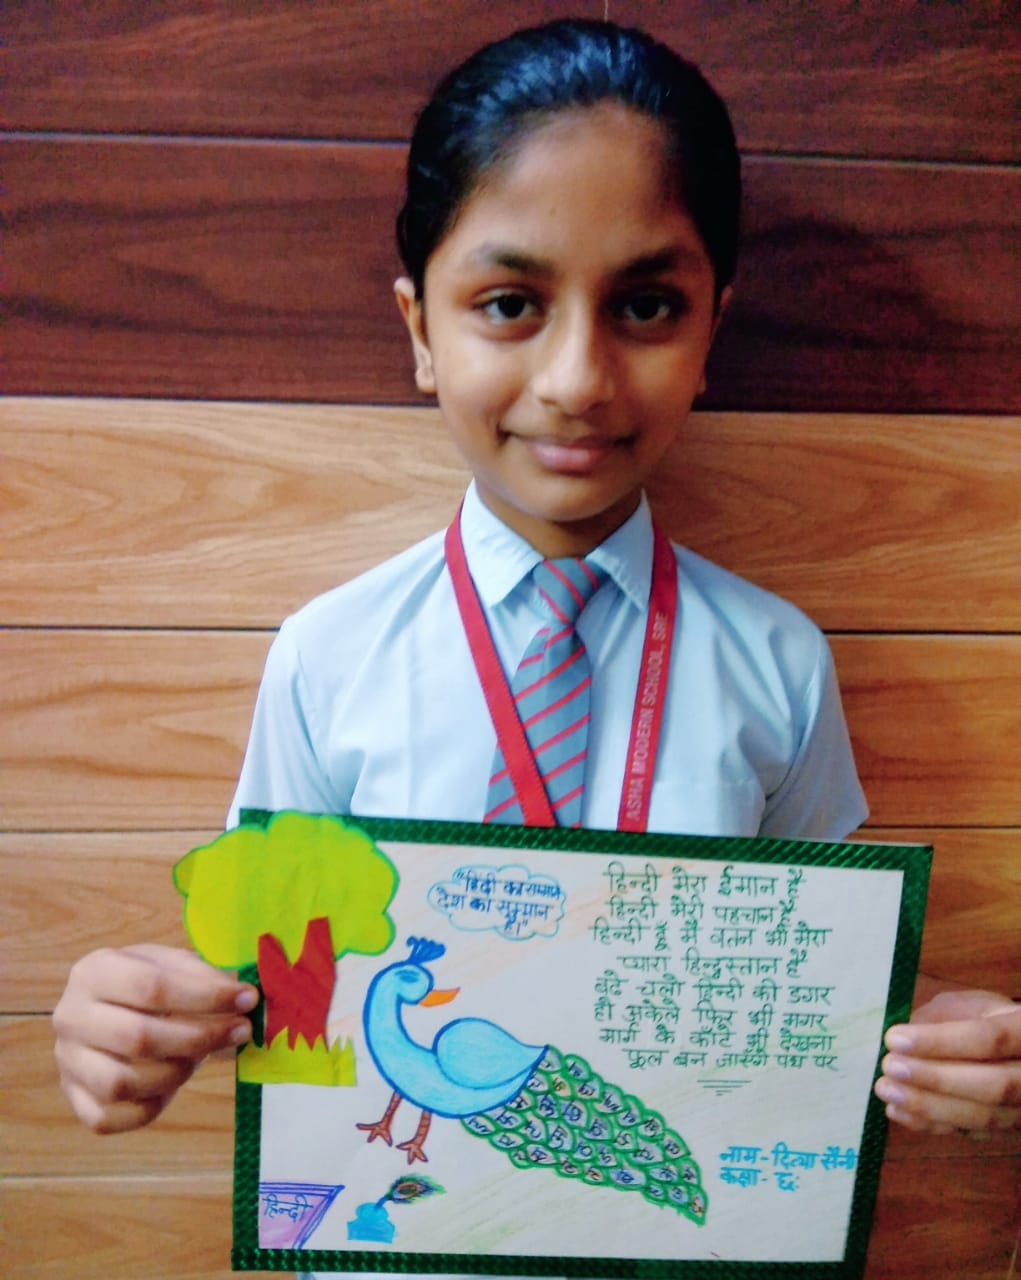 ASHA MODERN SCHOOL, SRE
"हिंदी का सम्मान
देश का सम्मान
है।"
हिन्दी मेरा ईमान है
हिन्दी मेरी पहचान है
हिन्दी हूँ मैं वतन भी मेरा
प्यारा हिन्दुस्तान है
बढ़े चलो हिन्दी की डगर
हो अकेले फिर भी मगर
मार्ग के काँटे भी देखना
फूल बन जाएँगे पथ पर
नाम - दित्या सैनी
कक्षा - छः
हिन्दी